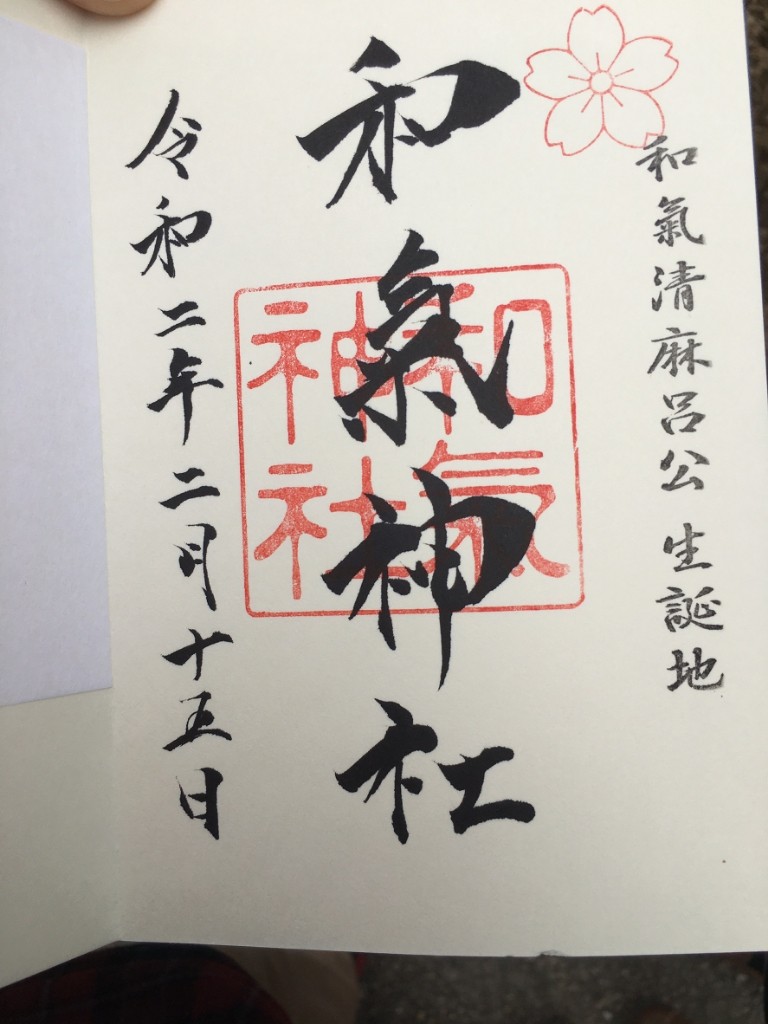 和氣清麻呂公 生誕地
和氣神社
和氣
神社
令和二年二月十五日